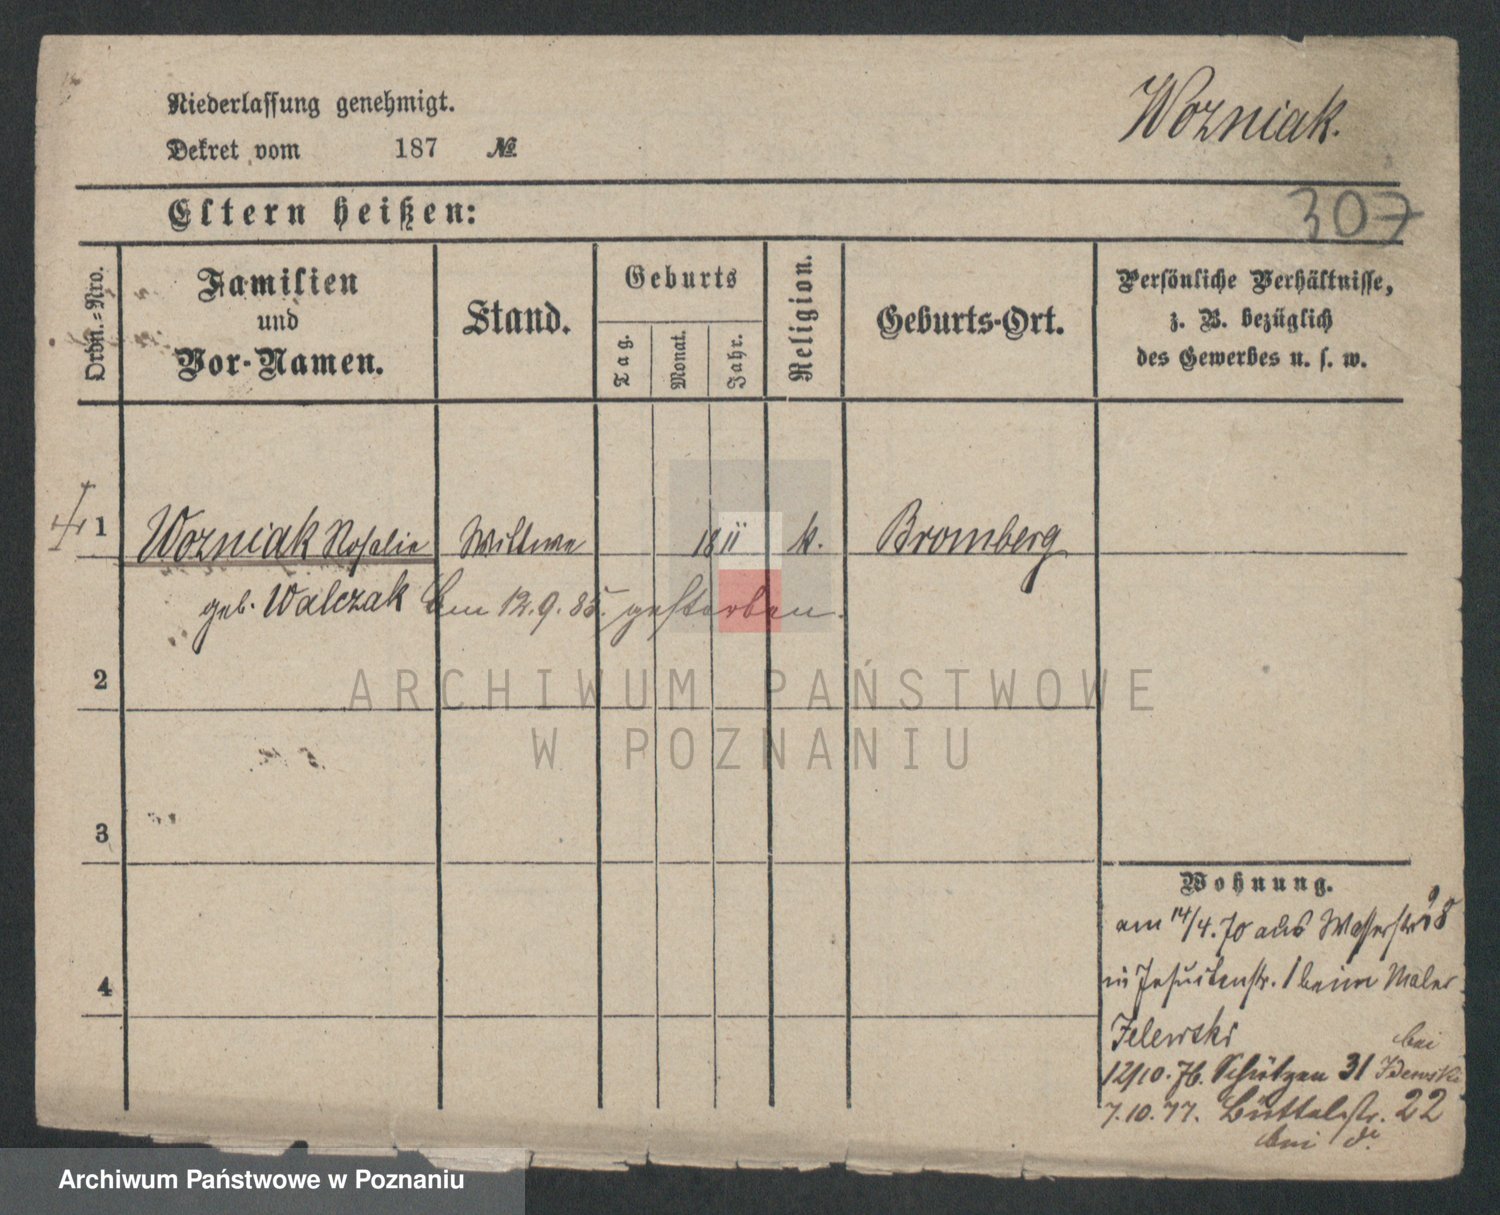 Niederlassung genehmigt.
Wozniak.
Dekret vom 187 №
Eltern heißen:
307
Ordn.-Nro.
Familien
und
Vor-Namen.
Stand.
Geburts
Tag.
Monat.
Jahr.
Religion.
Geburts-Ort.
Persönliche Verhältnisse,
z. B. bezüglich
des Gewerbes u. s. w.
1 Wozniak Rosalie Wittwe 1811 k. Bromberg
geb. Walczak am 12.9.85. gestorben.
2
ARCHIWUM PAŃSTWOWE
W POZNANIU
3
4
Wohnung.
am 14/4. 70 aus Wasserstr
in Jesuitenstr. 1 beim Maler
Jelewski
bei
12/10. 76. Schützen 31
7.10.77. Büttelstr. 22
bei d.
Archiwum Państwowe w Poznaniu